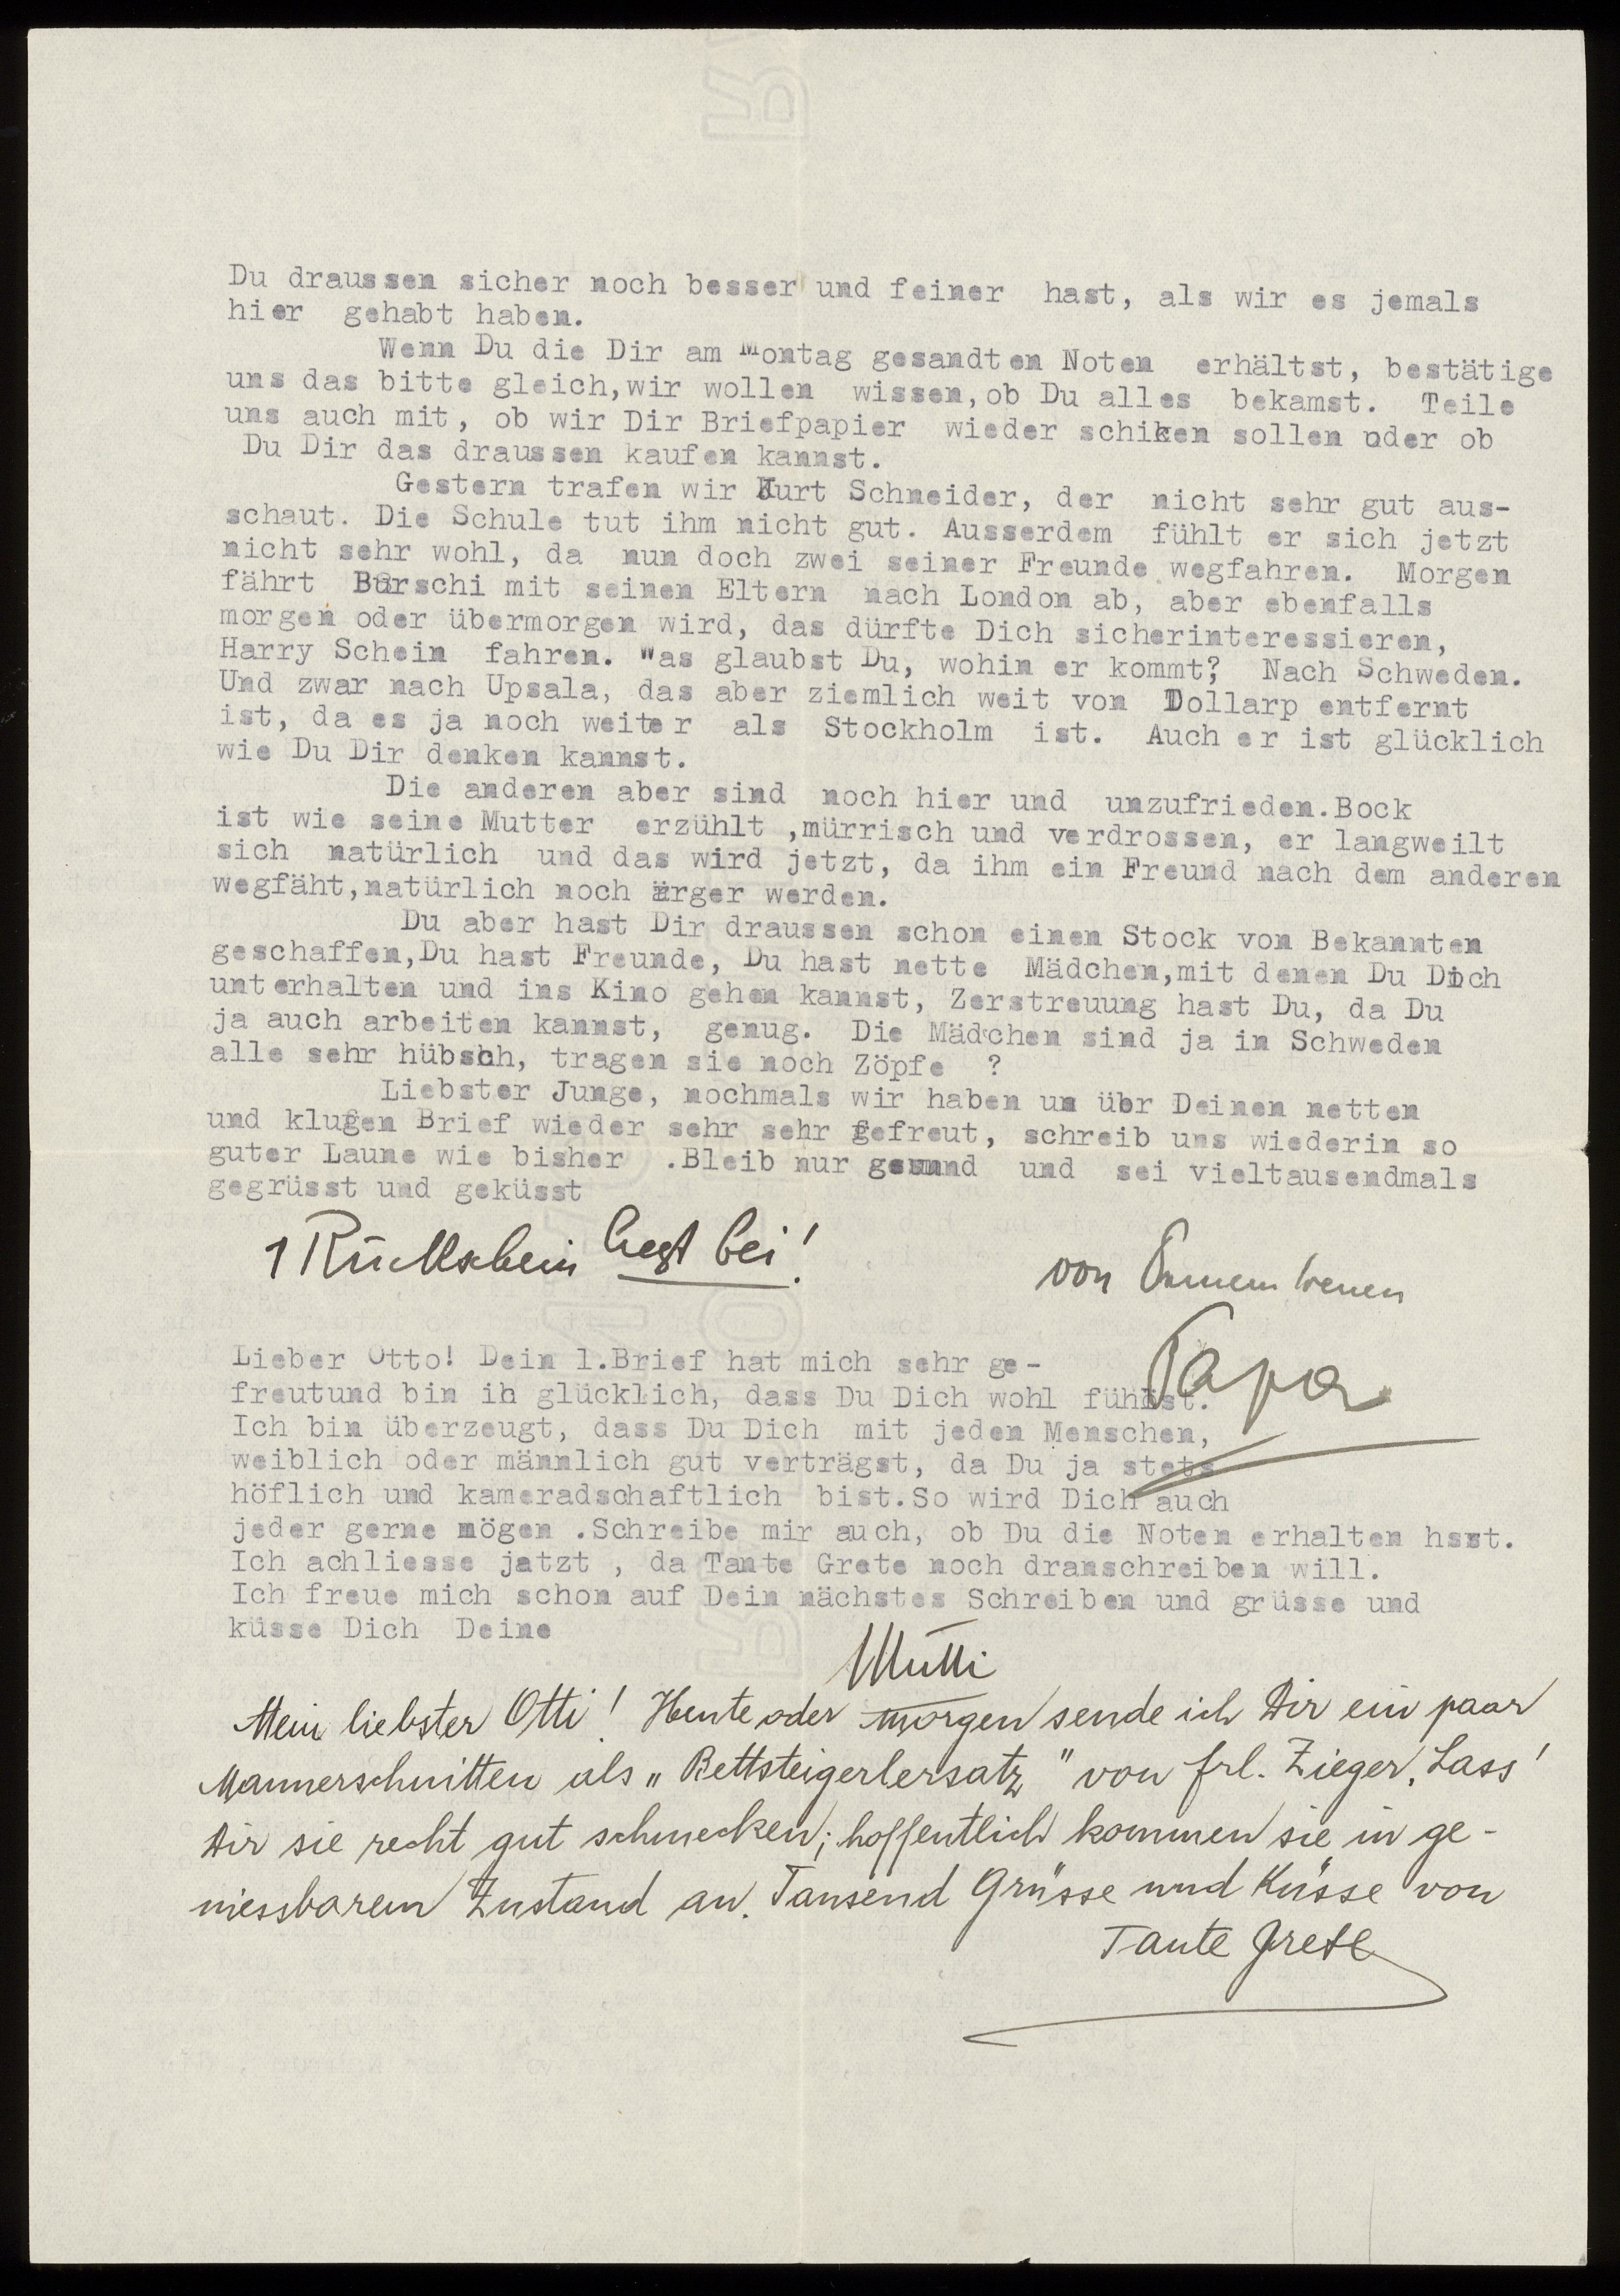 Du draussen sicher noch besser und feiner hast, als wir es jemals
hier gehabt haben.
Wenn Du die Dir am Montag gesandten Noten erhältst, bestätige
uns das bitte gleich,wir wollen wissen,ob Du alles bekamst. Teile
uns auch mit, ob wir Dir Briefpapier wieder schiken sollen oder ob
Du Dir das draussen kaufen kannst.
Gestern trafen wir Kurt Schneider, der nicht sehr gut aus-
schaut. Die Schule tut ihm nicht gut. Ausserdem fühlt er sich jetzt
nicht sehr wohl, da nun doch zwei seiner Freunde wegfahren. Morgen
fährt Burschi mit seinen Eltern nach London ab, aber ebenfalls
morgen oder übermorgen wird, das dürfte Dich sicherinteressieren,
Harry Schein fahren. Was glaubst Du, wohin er kommt? Nach Schweden.
Und zwar nach Upsala, das aber ziemlich weit von Dollarp entfernt
ist, da es ja noch weiter als Stockholm ist. Auch er ist glücklich
wie Du Dir denken kannst.
Die anderen aber sind noch hier und unzufrieden.Bock
ist wie seine Mutter erzühlt ,mürrisch und verdrossen, er langweilt
sich natürlich und das wird jetzt, da ihm ein Freund nach dem anderen
wegfäht,natürlich noch ärger werden.
Du aber hast Dir draussen schon einen Stock von Bekannten
geschaffen,Du hast Freunde, Du hast nette Mädchen,mit denen Du Dich
unterhalten und ins Kino gehen kannst, Zerstreuung hast Du, da Du
ja auch arbeiten kannst, genug. Die Mädchen sind ja in Schweden
alle sehr hübsch, tragen sie noch Zöpfe ?
Liebster Junge, nochmals wir haben un übr Deinen netten
und klugen Brief wieder sehr sehr gefreut, schreib uns wiederin so
guter Laune wie bisher .Bleib nur gesund und sei vieltausendmals
gegrüsst und geküsst
1 Rückschein liegt bei!
von Deinem treuen
Papa
Lieber Otto! Dein l.Brief hat mich sehr ge-
freutund bin ih glücklich, dass Du Dich wohl fühlst.
Ich bin überzeugt, dass Du Dich mit jeden Menschen,
weiblich oder männlich gut verträgst, da Du ja stets
höflich und kameradschaftlich bist.So wird Dich auch
jeder gerne mögen .Schreibe mir auch, ob Du die Noten erhalten hsst.
Ich achliesse jatzt , da Tante Grete noch dranschreiben will.
Ich freue mich schon auf Dein nächstes Schreiben und grüsse und
küsse Dich Deine
Mutti
Mein liebster Otti! Heute oder morgen sende ich Dir ein paar
Mannerschnitten als „Bettsteigerlersatz" von Frl. Zieger. Lass'
Dir sie recht gut schmecken; hoffentlich kommen sie in ge-
niessbarem Zustand an. Tausend Grüsse und Küsse von
Tante Grete